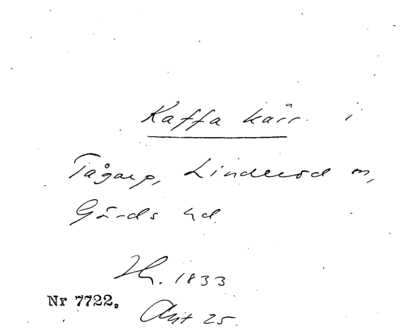 Kaffa kärr i
Tågarp, Linderöd sn,
Gärds hd
1833
Nr 7722. Akt 25.